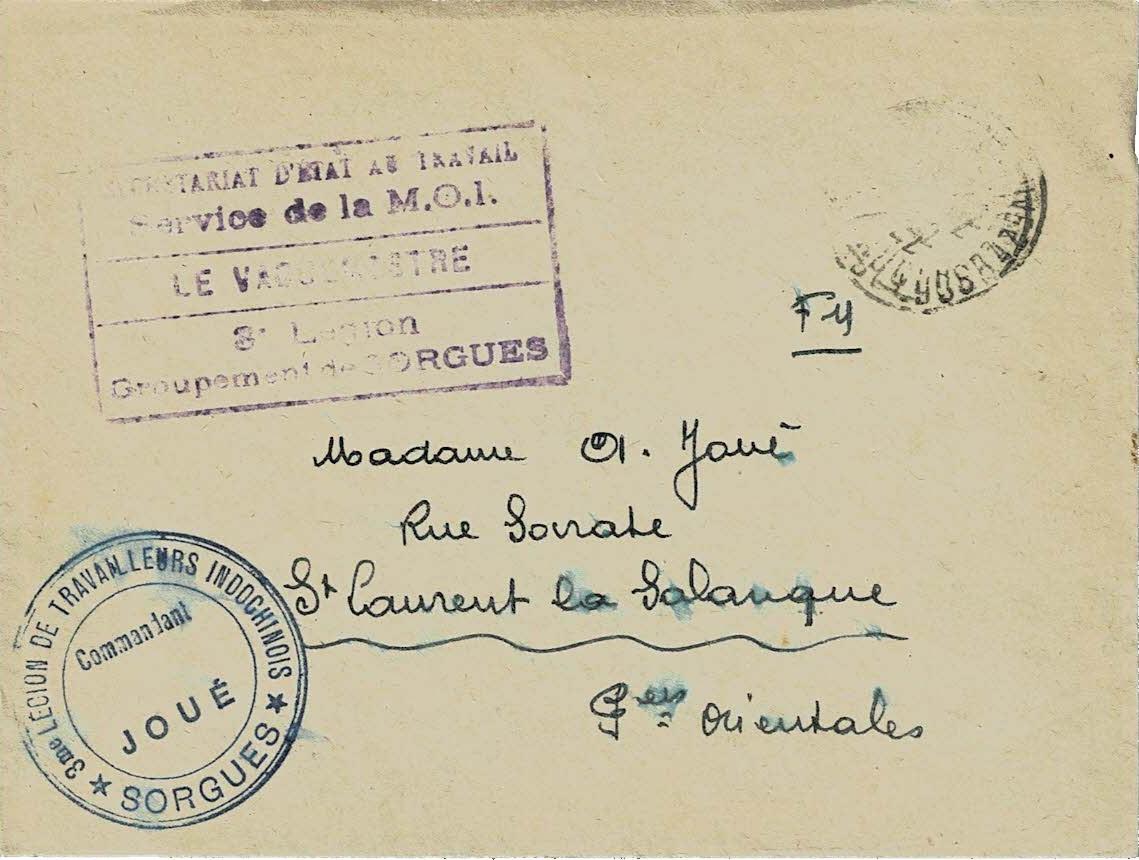 SECRETARIAT D'ÉTAT AU TRAVAIL
Service de la M.O.I.
LE VAGUEMESTRE
3e Légion
Groupement de SORGUES
FM
Madame A. Joué
Rue Socrate
St Laurent la Salanque
P^ées Orientales
3me LEGION DE TRAVAILLEURS INDOCHINOIS
Commandant
JOUÉ
★ SORGUES ★